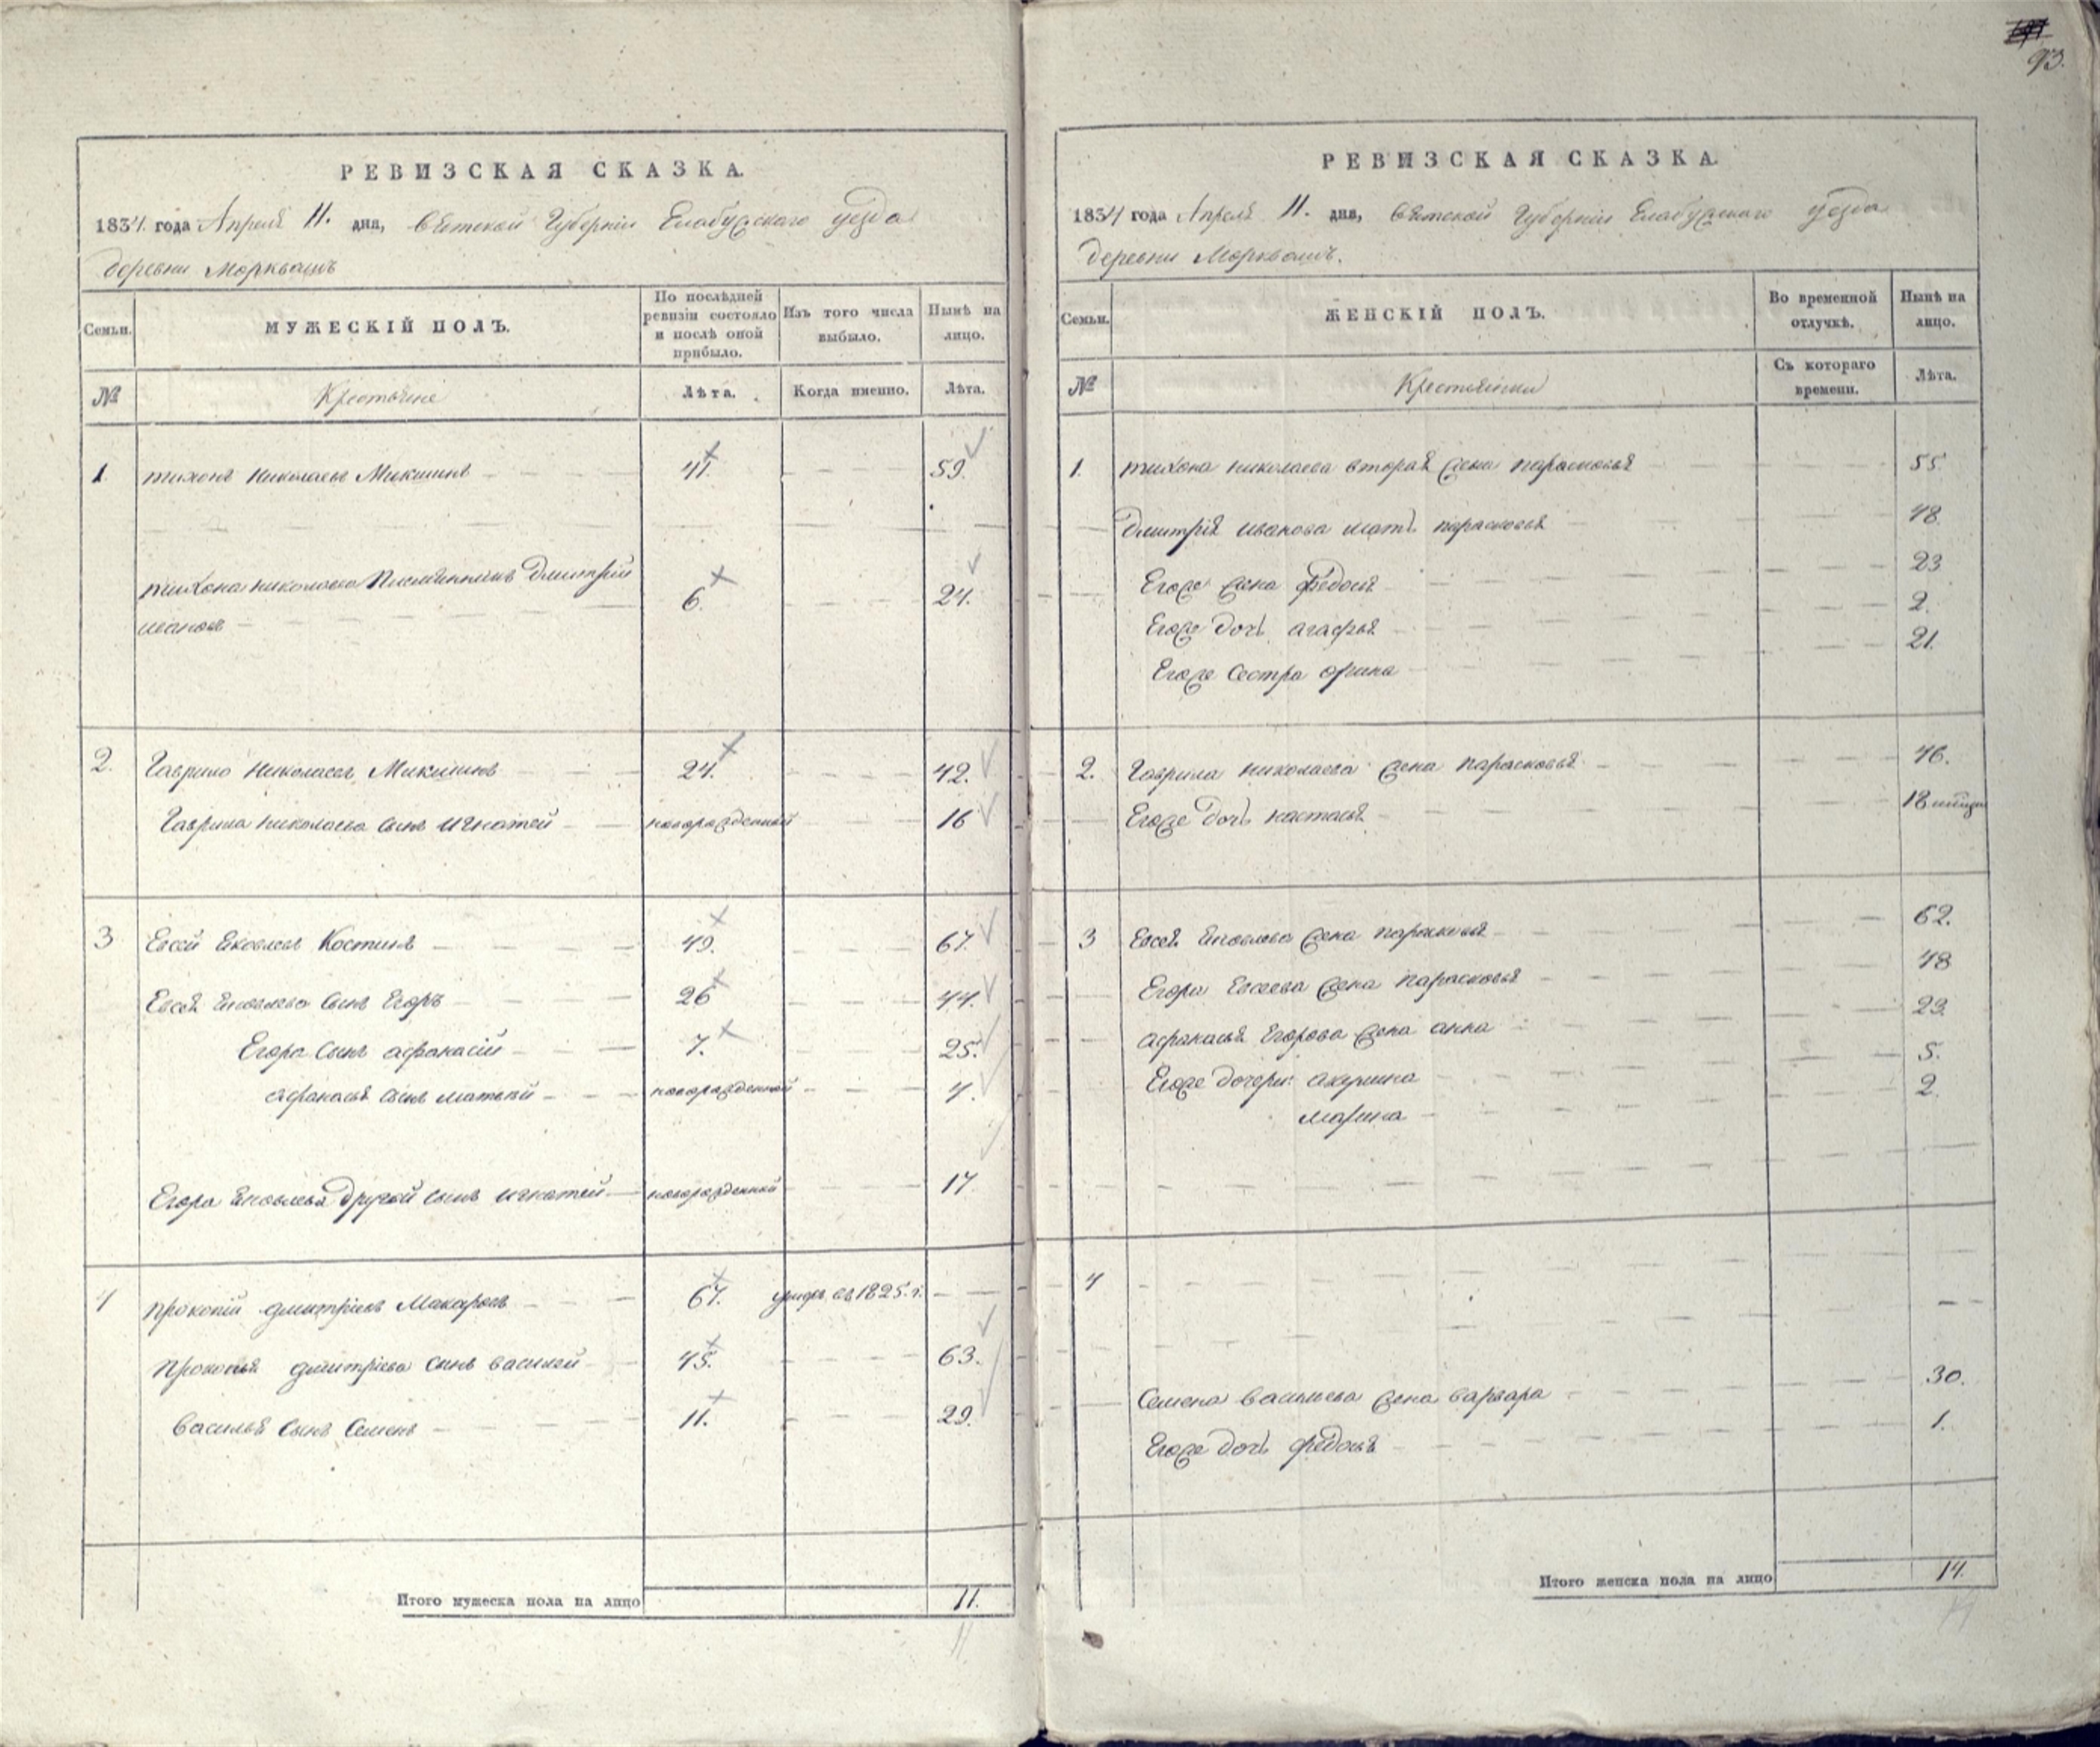 93.
РЕВИЗСКАЯ СКАЗКА.
1834 года Апреля 11. дня, Вятской Губернии Елабужского уезда
деревни Морквашъ
Семьи.
МУЖЕСКІЙ ПОЛЪ.
По послѣдней ревизіи состояло и послѣ оной прибыло.
Изъ того числа выбыло.
Нынѣ на лицо.
№
Крестьяне
Лѣта.
Когда именно.
Лѣта.
1 тихонъ николаевъ Микишинъ 41. 59.
тихона николаева Племянникъ Дмитрий 6. 24.
ивановъ
2. Гаврило Николаевъ Микишинъ 24. 42.
Гаврила николаева сынъ игнатей новорожденный 16
3 Евсей Яковлевъ Костинъ 49. 67.
Евсея Яковлева сынъ Егоръ 26 44.
Егора сынъ афанасий 7. 25.
афанасья сынъ матвей новорожденной 4.
Егора Яковлева другой сынъ игнатей новорожденной 17
4 прокопий дмитриевъ Макаровъ 67. умеръ въ 1825. г.
прокопья дмитриева сынъ василей 45. 63.
василья сынъ Семенъ 11. 29.
Итого мужеска пола на лицо 11.
11
РЕВИЗСКАЯ СКАЗКА.
1834 года Апреля 11. дня, Вятской Губернии Елабужского уезда
деревни Морквашъ.
Семьи.
ЖЕНСКІЙ ПОЛЪ.
Во временной отлучкѣ.
Нынѣ на лицо.
№
Крестьянки
Съ котораго времени.
Лѣта.
1. тихона николаева вторая жена парасковья 55.
Дмитрия иванова мать парасковья 48.
Егоже жена федосья 23
Егоже дочь агафья 2.
Егоже сестра орина 21.
2. Гаврила николаева жена парасковья 46.
Егоже дочь настасья 18
3 Евсея Яковлева жена парасковья 62.
Егора Евсеева жена парасковья 48
афанасья Егорова жена анна 29.
Егоже дочери: акулина 5.
марина 2.
4
Семена васильева жена варвара 30.
Егоже дочь федосья 1.
Итого женска пола на лицо 14.
14